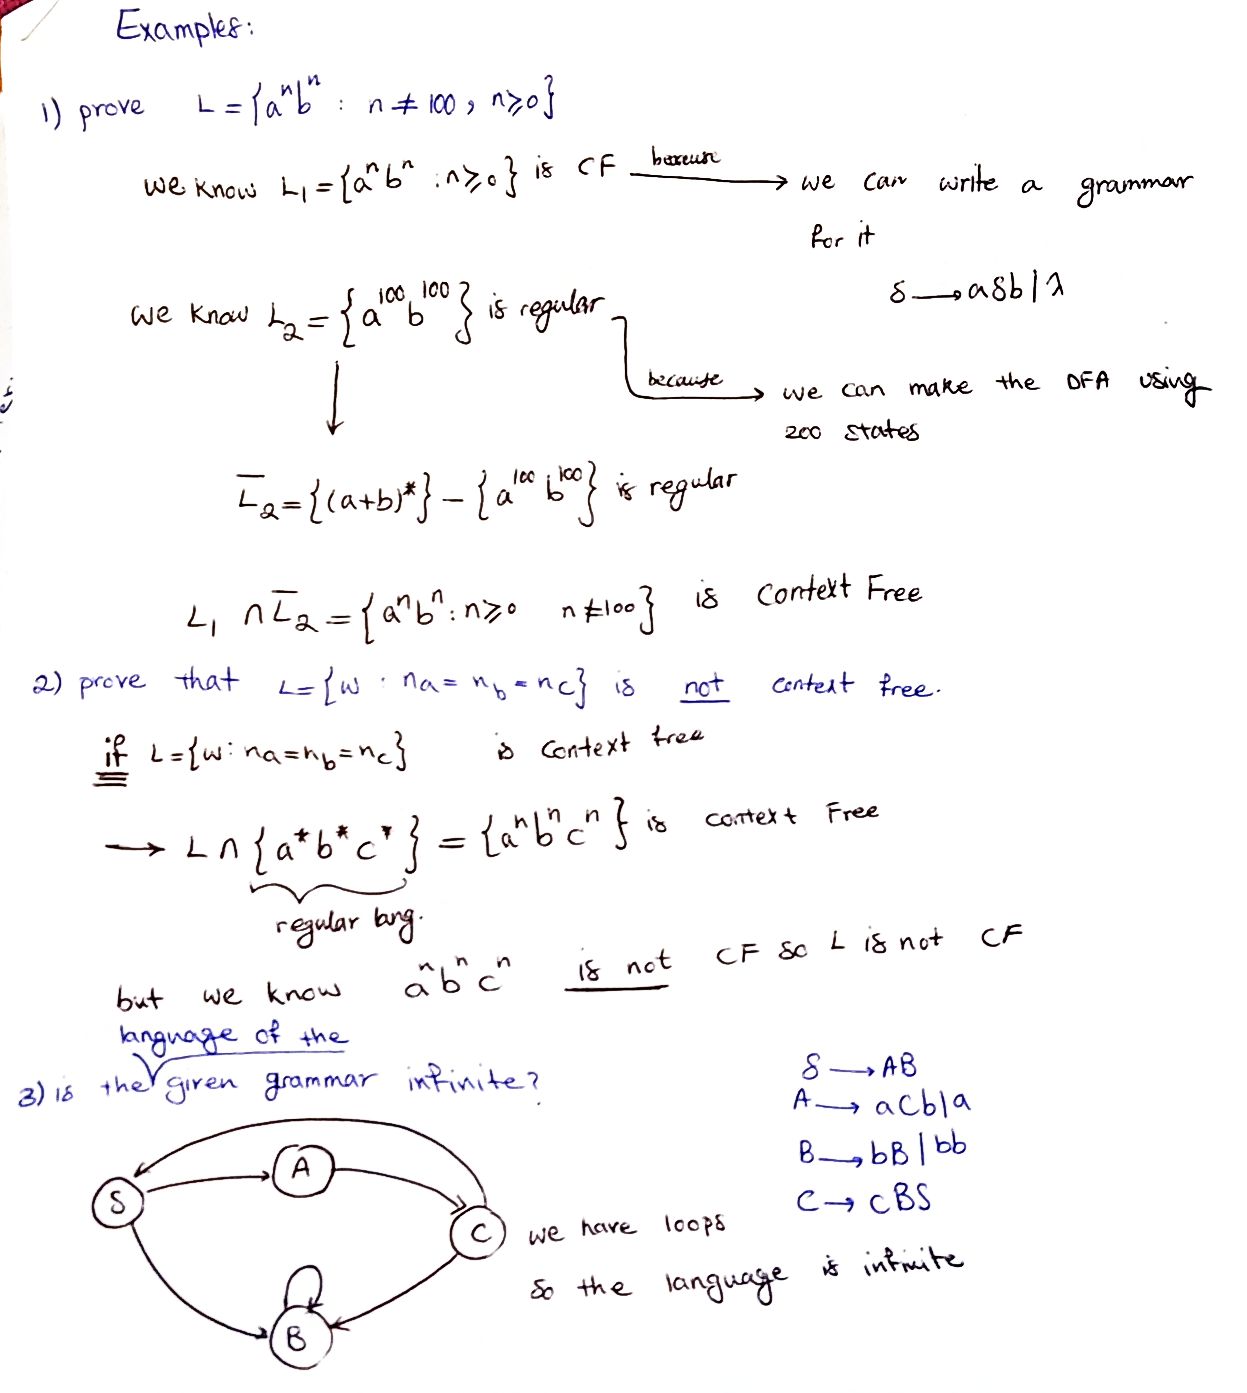 Examples:
1) prove L = {aⁿbⁿ : n ≠ 100, n ≥ 0}
we know L₁ = {aⁿbⁿ : n ≥ 0} is CF because → we can write a grammar
for it
S → aSb | λ
we know L₂ = {a¹⁰⁰b¹⁰⁰} is regular
because → we can make the DFA using
200 states
L̅₂ = {(a+b)*} - {a¹⁰⁰b¹⁰⁰} is regular
L₁ ∩ L̅₂ = {aⁿbⁿ : n ≥ 0 n ≠ 100} is Context Free
2) prove that L = {w : na = nb = nc} is not context free.
if L = {w : na = nb = nc} is context free
→ L ∩ {a*b*c*} = {aⁿbⁿcⁿ} is context Free
regular lang.
but we know aⁿbⁿcⁿ is not CF so L is not CF
language of the
3) is the given grammar infinite?
S → AB
A → aCb | a
B → bB | bb
C → cBS
S
A
C
B
we have loops
so the language is infinite